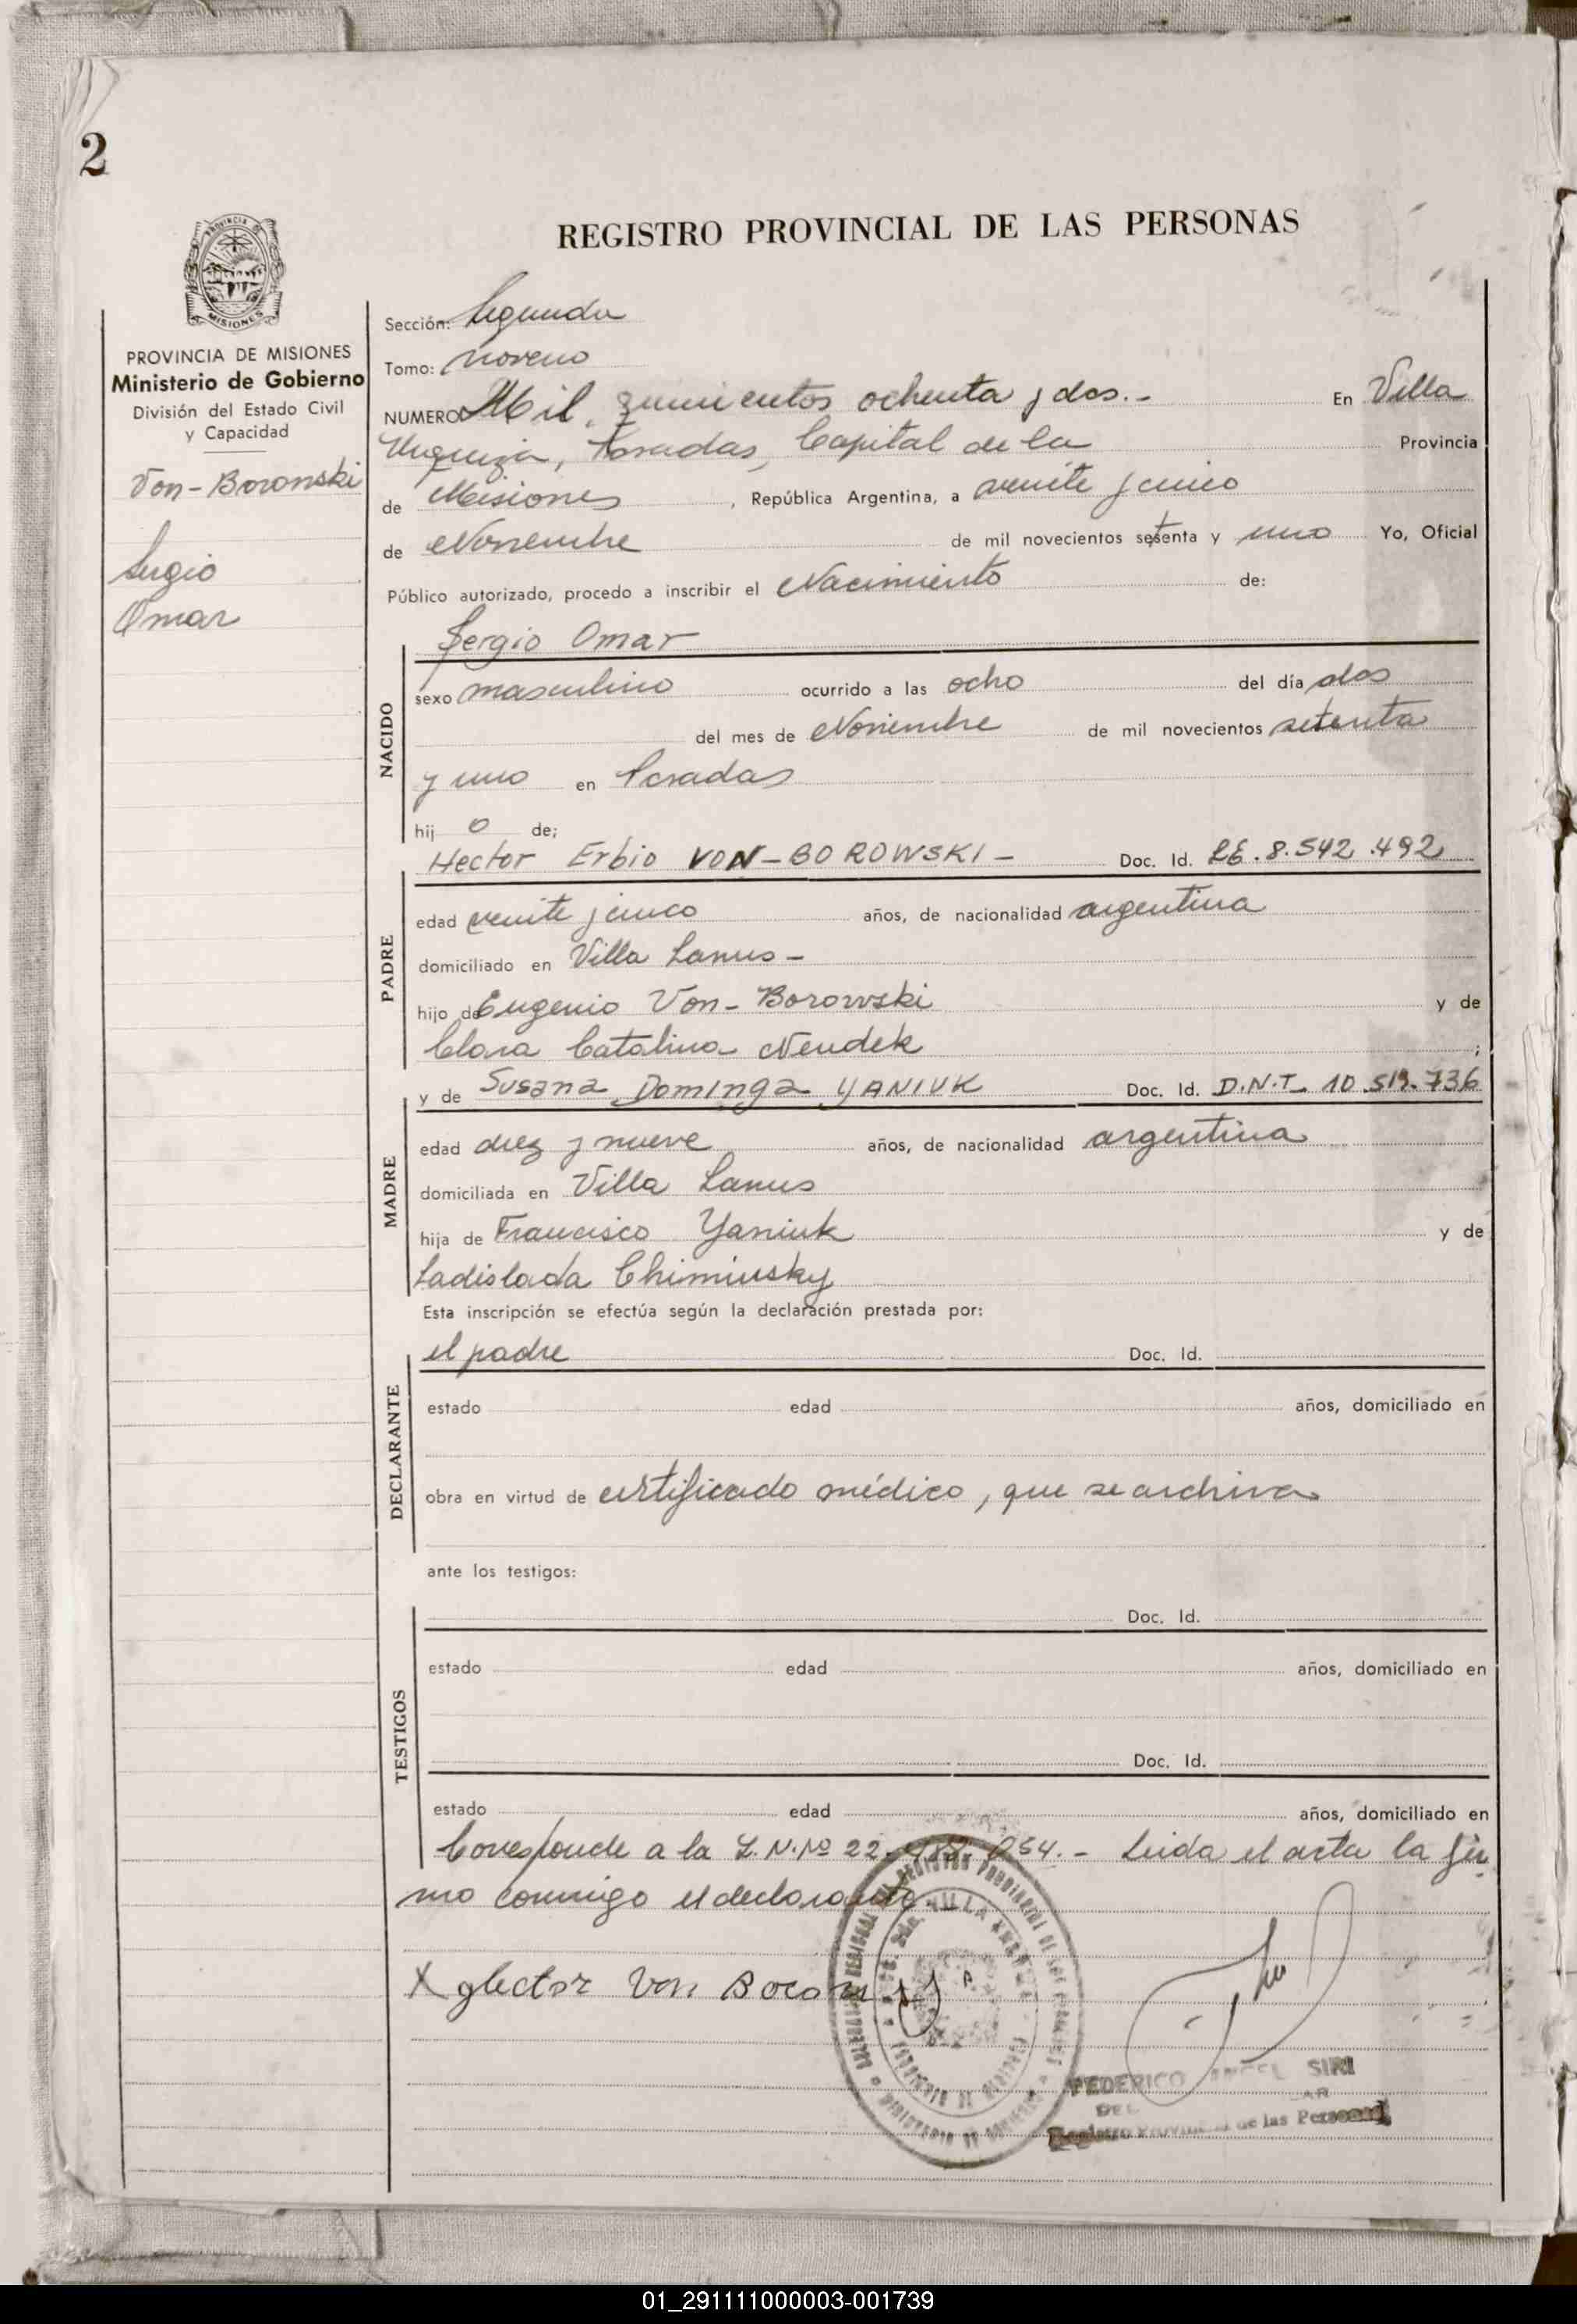 2
PROVINCIA
MISIONES
PROVINCIA DE MISIONES
Ministerio de Gobierno
División del Estado Civil
y Capacidad
Von-Borowski
Sergio
Omar
REGISTRO PROVINCIAL DE LAS PERSONAS
Sección: Segunda
Tomo: noveno
NUMERO Mil quinientos ochenta y dos.- En Villa
Urquiza, Posadas, Capital de la Provincia
de Misiones, República Argentina, a veinte y cinco
de Noviembre de mil novecientos setenta y uno Yo, Oficial
Público autorizado, procedo a inscribir el Nacimiento de:
NACIDO
Sergio Omar
sexo masculino ocurrido a las ocho del día dos
del mes de Noviembre de mil novecientos setenta
y uno en Posadas
hij o de;
PADRE
Hector Erbio VON-BOROWSKI- Doc. Id. LE.8.542.492
edad veinte y cinco años, de nacionalidad argentina
domiciliado en Villa Lanus-
hijo de Eugenio Von-Borowski y de
Clara Catalina Neudek ;
MADRE
y de Susana Dominga YANIUK Doc. Id. D.N.I. 10.519.736
edad diez y nueve años, de nacionalidad argentina
domiciliada en Villa Lanus
hija de Francisco Yaniuk y de
Ladislada Chiminsky
Esta inscripción se efectúa según la declaración prestada por:
DECLARANTE
el padre Doc. Id.
estado edad años, domiciliado en
obra en virtud de certificado médico, que se archiva
ante los testigos:
TESTIGOS
Doc. Id.
estado edad años, domiciliado en
Doc. Id.
estado edad años, domiciliado en
Corresponde a la L.N.Nº 22. 054.- Leida el acta la fir
mo conmigo el declarante.-
X Hector Von Borowski
VILLA
FEDERICO ANGEL SIRI
DEL
Registro Provincial de las Personas
01_291111000003-001739